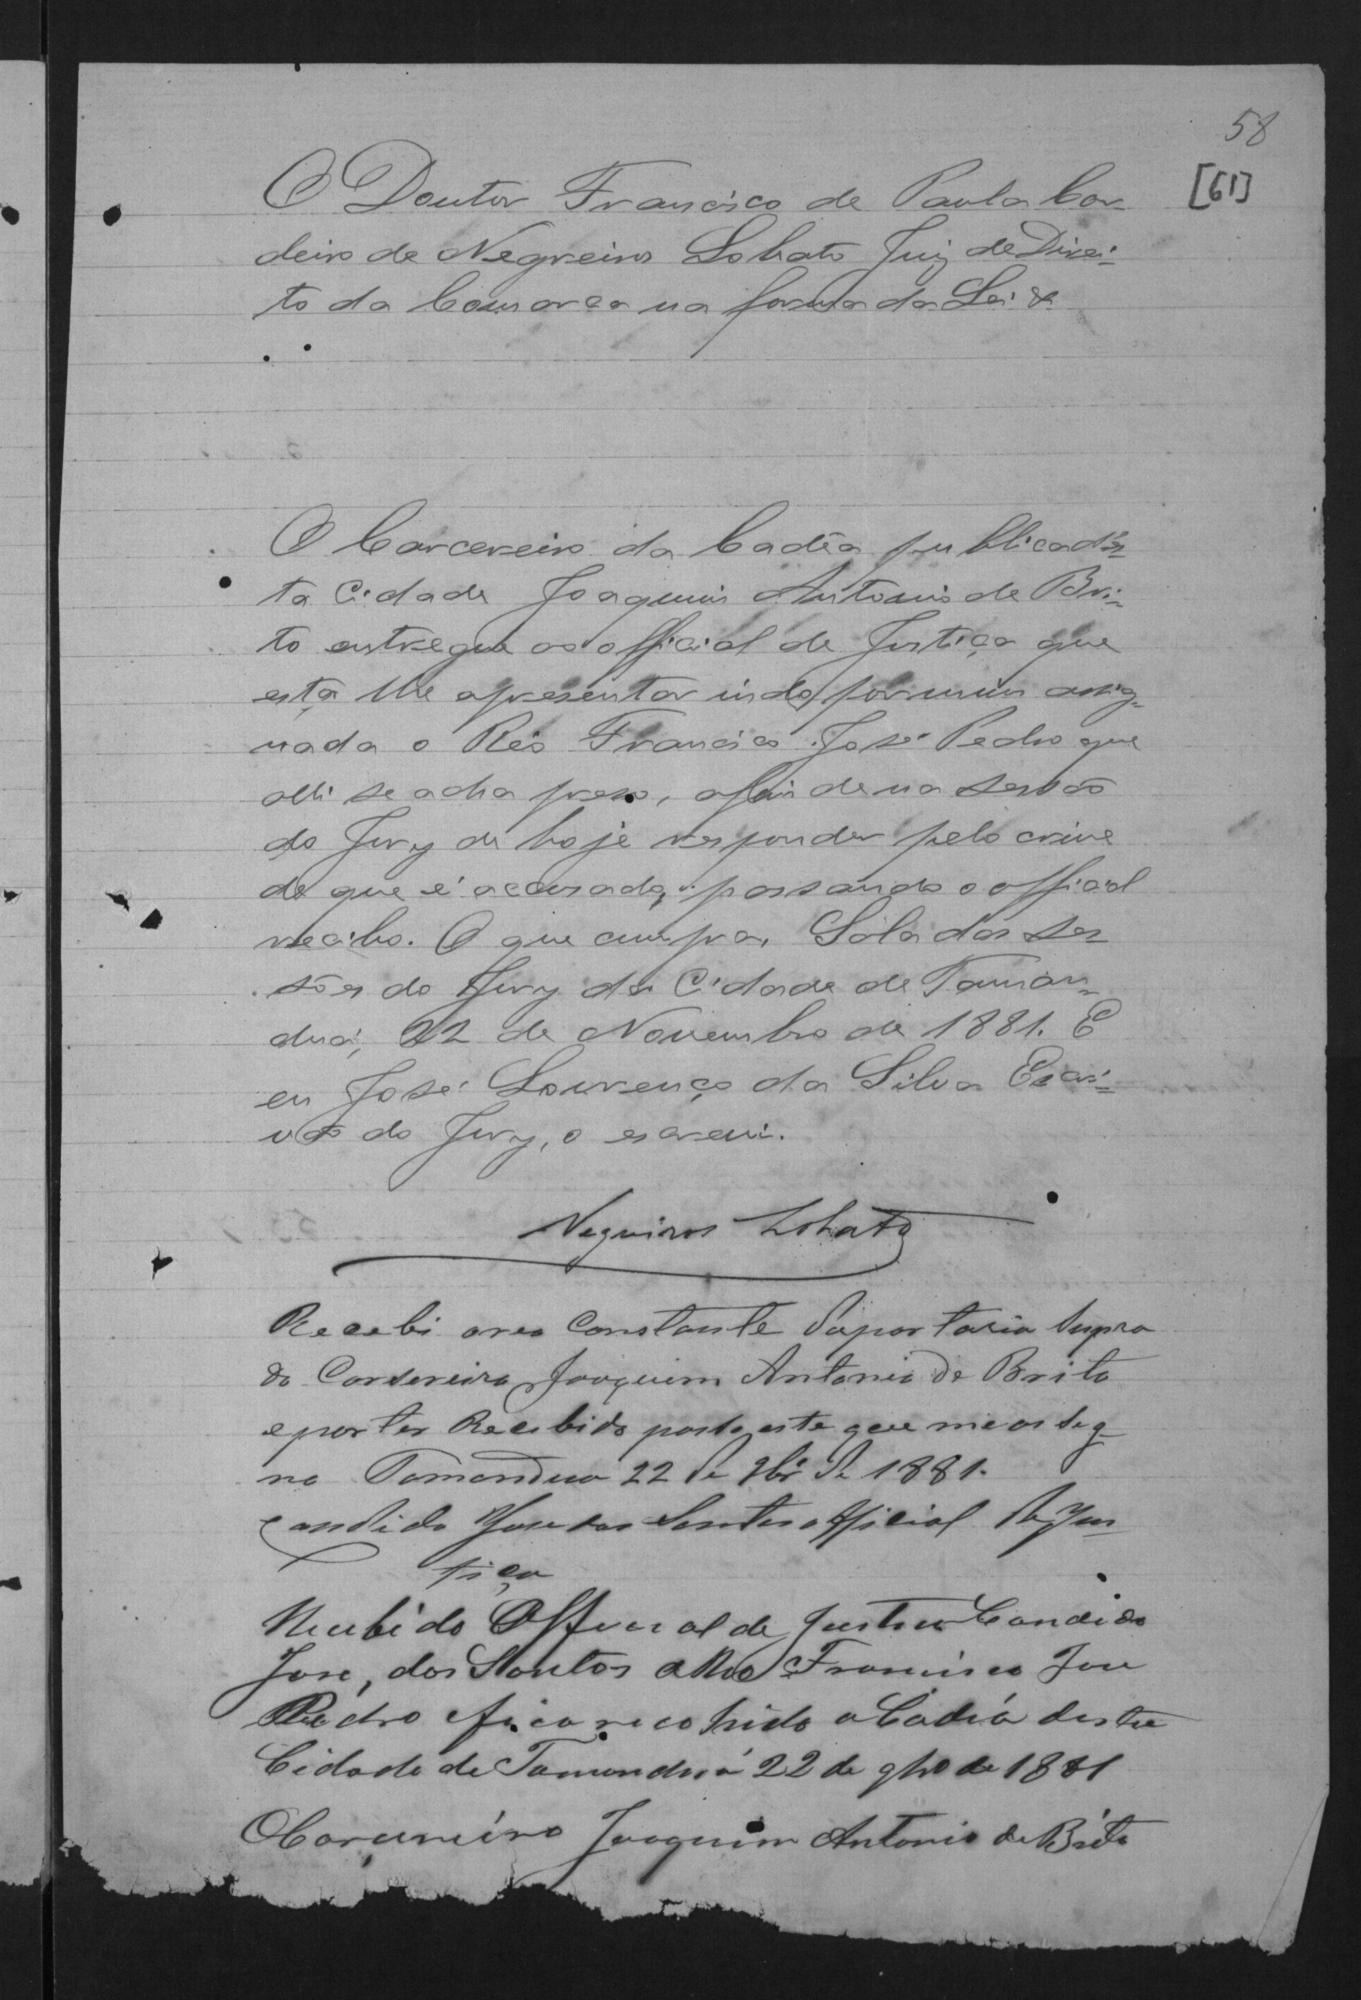 58
[61]
O Doutor Francisco de Paula Cor=
deiro de Negreiros Lobato Juiz de Direi=
to da Comarca na forma da Lei &
O Carcereiro da Cadêa publica d'es
ta Cidade Joaquim Antonio de Bri=
to entregue ao official de Justiça que
esta lhe apresentar indo por mim assig=
nada o Réo Francisco José Pedro que
alli se acha preso, afim de na sessão
do Jury de hoje responder pelo crime
de que é accusado, passando o official
recibo. O que cumpra. Sala das Ses
sões do Jury da Cidade de Taman=
duá, 22 de Novembro de 1881. E
eu José Lourenço da Silva Escri=
vão do Jury, o escrevi.
Negreiros Lobato
Recebi oreo Constante daportaria Supra
do Carsereiro Joaquim Antonio de Brito
e por ter Recebido paso este que me asig
no Tamandua 22 de 9br de 1881.
Candido Jose dos Santos official de Jus
tiça
Recebi do Official de Justiça Candido
Jose, dos Santos o Reo Francisco Jose
Pedro e fica recolhido a Cadéa desta
Cidade de Tamanduá 22 de 9bro de 1881
O Carcereiro Joaquim Antonio de Brito